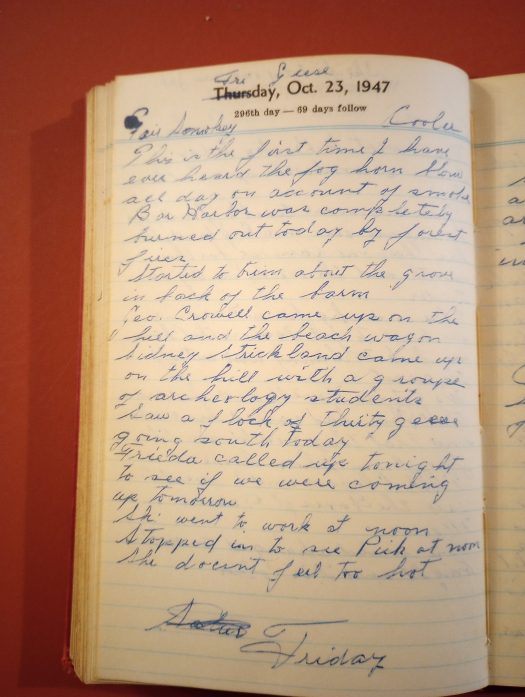 Fri Geese
Thursday, Oct. 23, 1947
296th day — 69 days follow
Fair Smokey Cooler
This is the first time I have
ever heard the fog horn blow
all day on account of smoke
Bar Harbor was completely
burned out today by forest
fires
Started to trim about the grove
in back of the barn
Geo. Crowell came up on the
hill and the beach wagon
Sidney Strickland came up
on the hill with a groupe
of archeology students
Saw a flock of thirty geese
going south today
Frieda called up tonight
to see if we were coming
up tomorrow
Ski went to work at noon
Stopped in to see Pick at noon
She doesnt feel too hot
Friday